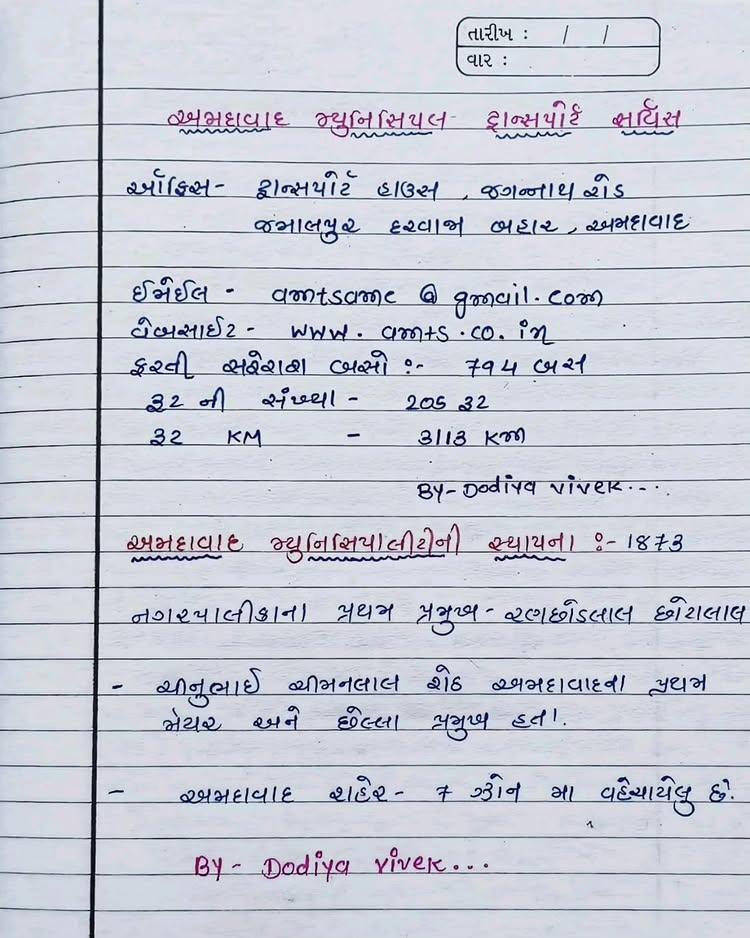 તારીખ : / /
વાર :
અમદાવાદ મ્યુનિસિપલ ટ્રાન્સપોર્ટ સર્વિસ
ઑફિસ - ટ્રાન્સપોર્ટ હાઉસ , જગન્નાથ રોડ
જમાલપુર દરવાજા બહાર , અમદાવાદ
ઈમેઈલ - amtsamc @ gmail.com
વેબસાઈટ - www. amts .co. in
ફરતી સરેરાશ બસો :- 794 બસ
રૂટ ની સંખ્યા - 205 રૂટ
રૂટ KM - 3113 Km
BY - Dodiya vivek....
અમદાવાદ મ્યુનિસિપાલીટીની સ્થાપના :- 1873
નગરપાલીકાના પ્રથમ પ્રમુખ - રણછોડલાલ છોટાલાલ
- ચીનુભાઈ ચીમનલાલ શેઠ અમદાવાદના પ્રથમ
મેયર અને છેલ્લા પ્રમુખ હતા.
- અમદાવાદ શહેર - 7 ઝોન મા વહેચાયેલુ છે.
BY - Dodiya vivek...